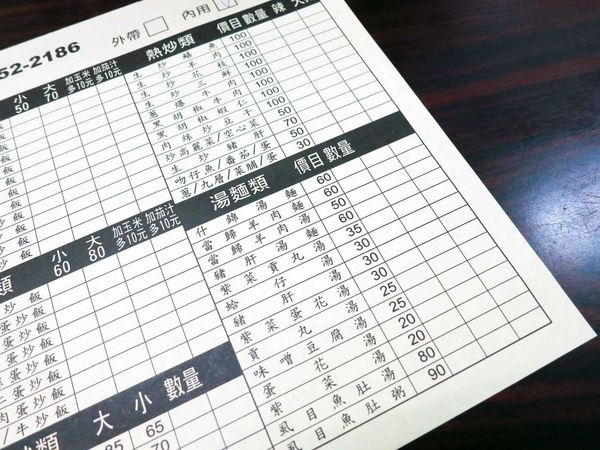 52-2186 外帶 內用
小 50 大 70 加玉米多10元 加茄汁多10元
熱炒類 價目 數量 辣
生炒鱔魚 100
生炒羊肉 100
生炒花枝 100
生炒三鮮 100
蔥爆牛肉 100
黑胡椒牛肉 100
黑胡椒蝦仁 100
肉絲炒豆干 100
炒高麗菜/空心菜 50
生炒豬肝 70
吻仔魚/番茄/蛋 50
蔥/九層/菜脯/蛋 30
湯麵類 價目 數量
什錦湯麵 60
當歸羊肉麵 60
當歸羊肉湯 50
豬肝湯麵 60
紫菜貢丸湯 35
蛤仔湯 30
豬肝湯 30
紫菜蛋花湯 30
貢丸湯 25
味噌豆腐湯 25
蛋花湯 20
紫菜湯 20
虱目魚肚湯 80
虱目魚肚粥 90
類 小 60 大 80 加玉米多10元 加茄汁多10元
炒飯
蛋炒飯
蛋炒飯
蛋炒飯
蛋炒飯
肉蛋炒飯
牛炒飯
類 大 小 數量
85 65
70